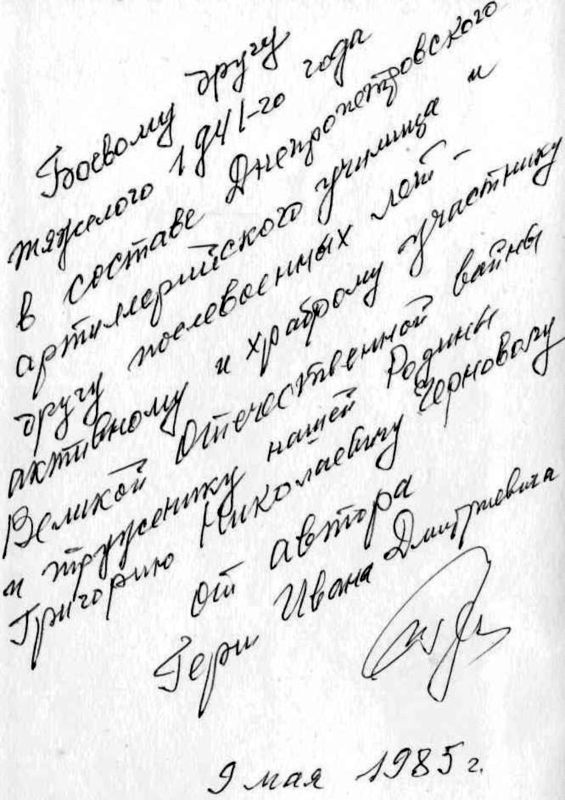 Боевому другу
тяжелого 1941-го года
в составе Днепропетровского
артиллерийского училища и
другу послевоенных лет -
активному и храброму участнику
Великой Отечественной вайны
и труженику нашей Родины
Григорию Николаевичу Черновому
от автора
Гери Ивана Дмитриевича
9 мая 1985 г.